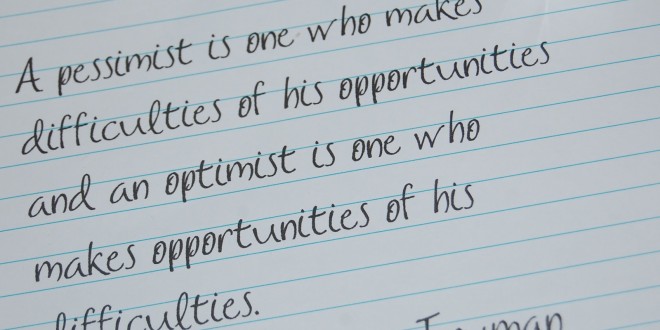 A pessimist is one who makes
difficulties of his opportunities
and an optimist is one who
makes opportunities of his
difficulties.